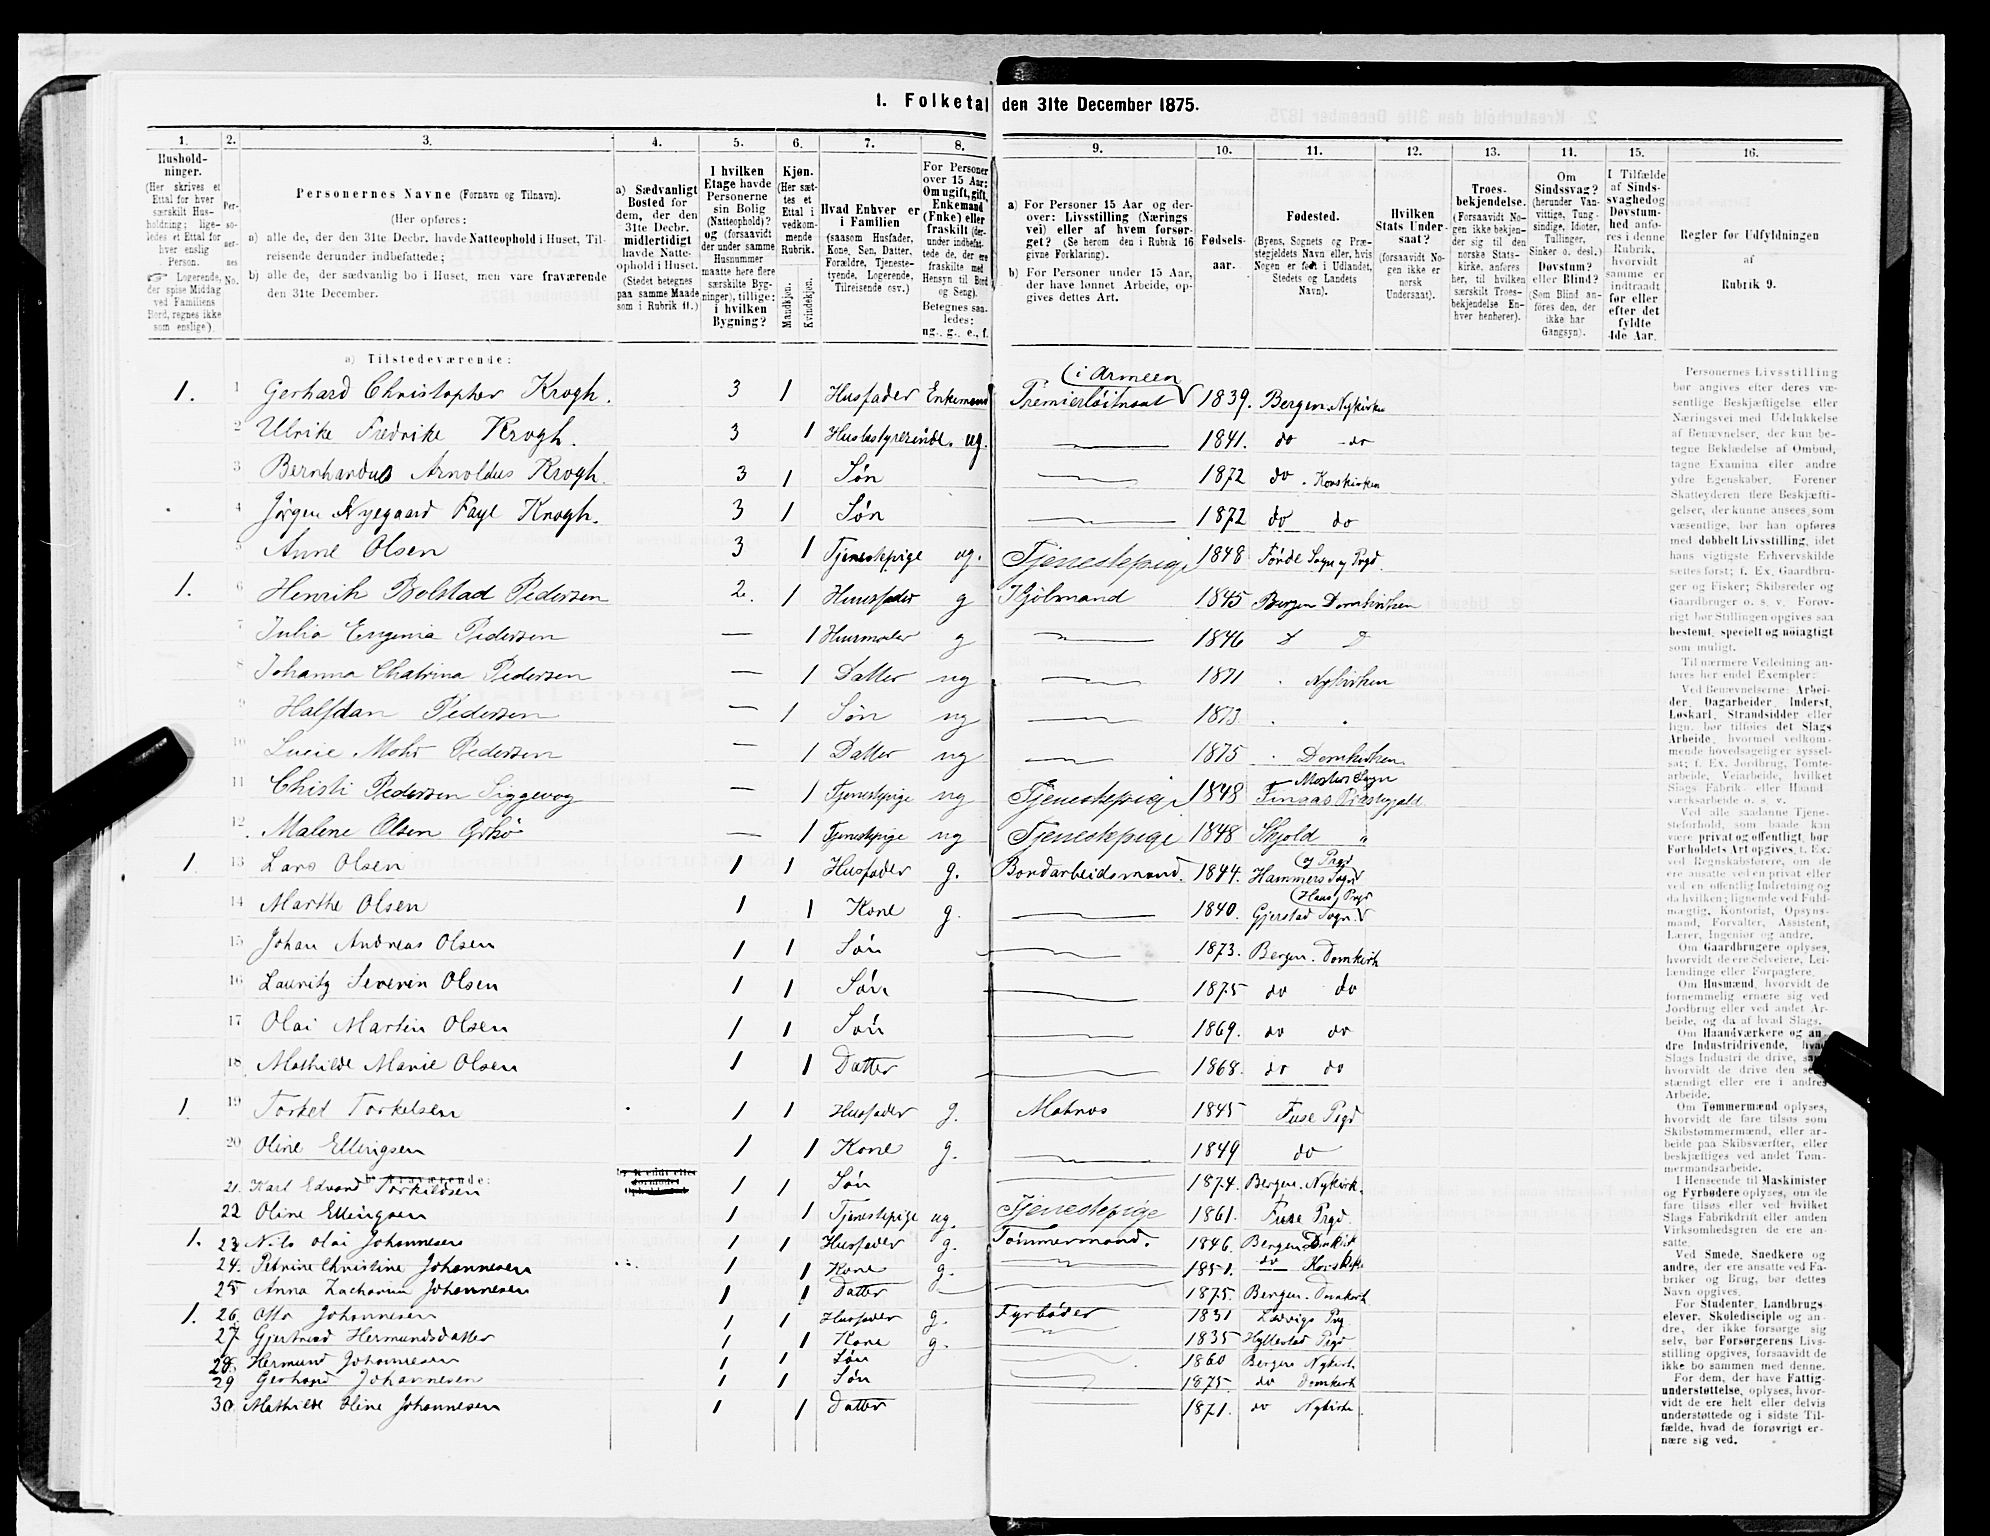 1. Folketal den 31te December 1875.
1. 2. 3. 4. 5. 6. 7. 8. 9. 10. 11. 12. 13. 14. 15. 16.
Husholdninger. (Her skrives et Ettal for hver særskilt Husholdning; ligeledes et Ettal for hver enslig Person. ☞ Logerende, der spise Middag ved Familiens Bord, regnes ikke som enslige).
Personernes No.
Personernes Navne (Fornavn og Tilnavn).
(Her opføres:
a) alle de, der den 31te Decbr. havde Natteophold i Huset, Tilreisende derunder indbefattede;
b) alle de, der sædvanlig bo i Huset, men vare fraværende den 31te December.
a) Sædvanligt Bosted for dem, der den 31te Decbr. midlertidigt havde Natteophold i Huset. (Stedet betegnes paa samme Maade som i Rubrik 11.)
I hvilken Etage havde Personerne sin Bolig (Natteophold)? og (forsaavidt der under samme Husnummer maatte høre flere særskilte Bygninger), tillige: i hvilken Bygning?
Kjøn. (Her sættes et Ettal i vedkommende Rubrik. Mandkjøn. Kvindekjøn.
Hvad Enhver er i Familien (saasom Husfader, Kone, Søn, Datter, Forældre, Tjenestetyende, Logerende, Tilreisende osv.)
For Personer over 15 Aar: Om ugift, gift, Enkemand (Enke) eller fraskilt (derunder indbefattede de, der ere fraskilte med Hensyn til Bord og Seng). Betegnes saaledes: ug., g., e., f.
a) For Personer 15 Aar og derover: Livsstilling (Næringsvei) eller af hvem forsørget? (Se herom den i Rubrik 16 givne Forklaring).
b) For Personer under 15 Aar, der have lønnet Arbeide, opgives dettes Art.
Fødselsaar.
Fødested. (Byens, Sognets og Præstegjeldets Navn eller, hvis Nogen er født i Udlandet, Stedets og Landets Navn).
Hvilken Stats Undersaat? (forsaavidt Nogen ikke er norsk Undersaat).
Troesbekjendelse. (Forsaavidt Nogen ikke bekjender sig til den norske Statskirke, anføres her, til hvilken særskilt Troesbekjendelse Enhver henhører).
Om Sindssvag? (herunder Vanvittige, Tungsindige, Idioter, Tullinger, Sinker o. desl.) Døvstum? eller Blind? (Som Blind anføres den, der ikke har Gangsyn).
I Tilfælde af Sindssvaghed og Døvstumhed anføres i denne Rubrik, hvorvidt samme er indtraadt før eller efter det fyldte 4de Aar.
Regler for Udfyldningen af Rubrik 9.
a) Tilstedeværende:
1. 1 Gerhard Christopher Krogh. 3 1 Husfader Enkemand Premierløitnant (i Armeen 1839. Bergen. Nykirke
2 Ulrike Fredrike Krogh. 3 1 Husbestyrerinde. ug. 1841. do do
3 Bernhardus Arnoldus Krogh. 3 1 Søn 1872 do. Korskirken
4 Jørgen Nyegaard Faye Krogh. 3 1 Søn 1872 do do
5 Anne Olsen 3 1 Tjenestepige ug. Tjenestepige 1848 Førde Sogn og Prgd.
1. 6 Henrik Bolstad Pedersen 2. 1 Huusfader g Kjøbmand 1845 Bergen Domkirken
7 Julia Eugenia Pedersen — 1 Husmoder g 1846
8 Johanna Chatrina Pedersen — 1 Datter ug 1871 Nykirken
9 Halfdan Pedersen — 1 Søn ug 1873
10 Lucie Mohr Pedersen — 1 Datter ug 1875 Domkirken
11 Christi Pedersen Siggevog — 1 Tjenestepige ug Tjenestepige 1848 Mosters Sogn Finaas Præstegjeld
12 Malene Olsen — 1 Tjenestepige ug Tjenestepige 1848 Skjold "
1. 13 Lars Olsen 1 1 Husfader g. Bordarbeidsmand. 1844. Hammers Sogn (og Prgd
14 Marthe Olsen 1 1 Kone g. 1840. Gjerstad Sogn. (Haus Prgd
15 Johan Andreas Olsen 1 1 Søn 1873. Bergen. Domkirk
16 Lauritz Severin Olsen 1 1 Søn 1875 do do
17 Olai Martin Olsen 1 1 Søn 1869. do do
18 Mathilde Marie Olsen 1 1 Datter 1868. do do
1. 19 Torket Torkelsen 1 1 Husfader g. Matros 1845 Fuse Prgd
20 Oline Ellingsen 1 1 Kone g. 1849 do
21. Karl Edvard Torkildsen 1 1 Søn 1874. Bergen. Nykirk.
22 Oline Ellingsen 1 1 Tjenestepige ug. Tjenestepige 1861. Fuse Prgd.
1. 23 Nils Olai Johannesen 1 1 Husfader g. Tømmermand. 1846. Bergen. Domkirk
24. Petrine Christine Johannesen 1 1 Kone g. 1851. do Korskirke
25 Anna Zacharine Johannesen 1 1 Datter 1875. Bergen. Domkirk
1. 26. Otto Johannesen 1 1 Husfader g. Fyrbøder 1831 Ladvigs Prg.
27 Gjertrud Hermundsdatter 1 1 Kone g. 1835 Hyllestad Prgd
28. Hermund Johannesen 1 1 Søn 1860 Bergen Nykirk.
29 Gerhard Johannesen 1 1 Søn 1875. do Domkirk
30 Mathilde Oline Johannesen 1 1 Datter 1871. do Nykirke.
Personernes Livsstilling
bør angives efter deres væ-
sentlige Beskjæftigelse eller
Næringsvei med Udelukkelse
af Benævnelser, der kun be-
tegne Beklædelse af Ombud,
tagne Examina eller andre
ydre Egenskaber. Forener
Skatteyderen flere Beskjæfti-
gelser, der kunne ansees som
væsentlige, bør han opføres
med dobbelt Livsstilling, idet
hans vigtigste Erhvervskilde
sættes først; f. Ex. Gaardbru-
ger og Fisker; Skibsreder og
Gaardbruger o. s. v. Forøv-
rigt bør Stillingen opgives saa
bestemt, specielt og nøiagtigt
som muligt.
Til nærmere Veiledning an-
føres her endel Exempler:
Ved Benævnelserne: Arbei-
der, Dagarbeider, Inderst,
Løskarl, Strandsidder eller
lign. bør tilføies det Slags
Arbeide, hvormed vedkom-
mende hovedsagelig er syssel-
sat; f. Ex. Jordbrug, Tomte-
arbeide, Veiarbeide, hvilket
Slags Fabrik- eller Haand-
værksarbeide o. s. v.
Ved alle saadanne Tjene-
steforhold, som baade kan
være privat og offentligt, bør
Forholdets Art opgives, f. Ex.
ved Regnskabsførere, om de
ere ansatte ved en privat eller
ved en offentlig Indretning og
da hvilken; lignende ved Fuld-
mægtig, Kontorist, Opsyns-
mand, Forvalter, Assistent,
Lærer, Ingeniør og andre.
Om Gaardbrugere oplyses,
hvorvidt de ere Selveiere, Lei-
lændinge eller Forpagtere.
Om Husmænd, hvorvidt de
fornemmelig ernære sig ved
Jordbrug eller ved andet Ar-
beide, og da af hvad Slags.
Om Haandværkere og an-
dre Industridrivende, hvad
Slags Industri de drive, samt
hvorvidt de drive den selv-
stændigt eller ere i andres
Arbeide.
Om Tømmermænd oplyses,
hvorvidt de fare tilsøs som
Skibstømmermænd, eller ar-
beide paa Skibsværfter, eller
beskjæftiges ved andet Tøm-
mermandsarbeide.
I Henseende til Maskinister
og Fyrbødere oplyses, om de
fare tilsøs eller ved hvilket
Slags Fabrikdrift eller anden
Virksomhedsgren de ere an-
satte.
Ved Smede, Snedkere og
andre, der ere ansatte ved Fa-
briker og Brug, bør dettes
Navn opgives.
For Studenter, Landbrugs-
elever, Skoledisciple og an-
dre, der ikke forsørge sig
selv, bør Forsørgerens Livs-
stilling opgives, forsaavidt de
ikke bo sammen med denne.
For dem, der have Fattig-
understøttelse, oplyses, hvor-
vidt de ere helt eller delvis
understøttede og i sidste Til-
fælde, hvad de forøvrigt er-
nære sig ved.